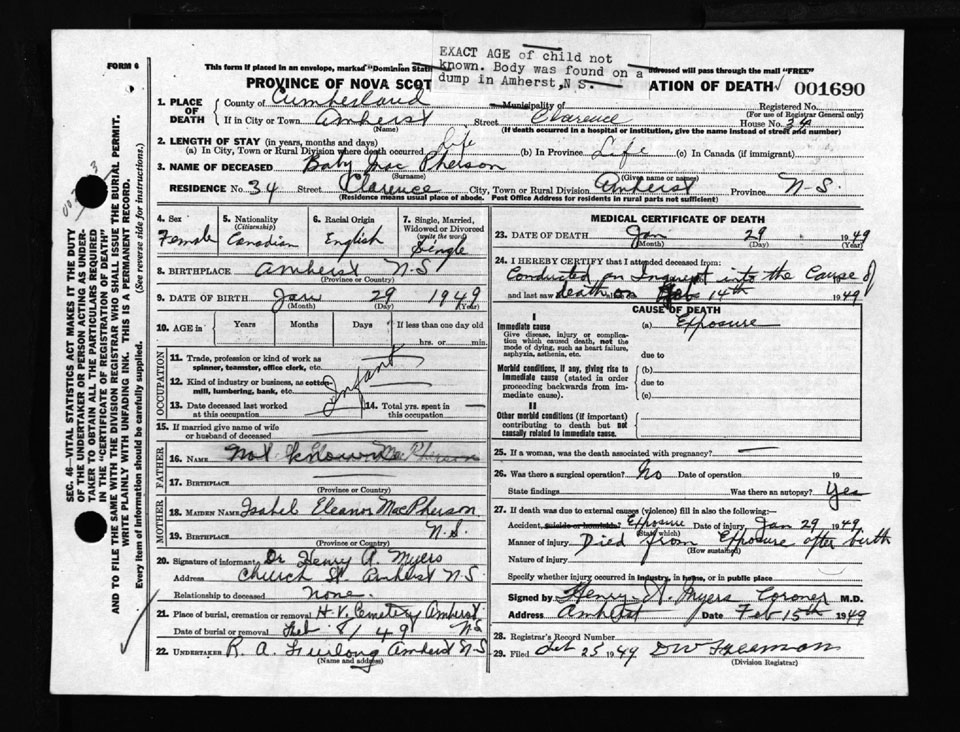 FORM 6
This form if placed in an envelope, marked "Dominion Stati
EXACT AGE of child not
known. Body was found on a
dump in Amherst, N S.
ddressed will pass through the mail "FREE"
PROVINCE OF NOVA SCOT
ATION OF DEATH
001690
1. PLACE OF DEATH
County of Cumberland
Municipality of
Registered No.
(For use of Registrar General only)
If in City or Town Amherst
(Name)
Street Clarence
House No. 34
(If death occurred in a hospital or institution, give the name instead of street and number)
2. LENGTH OF STAY (in years, months and days)
(a) In City, Town or Rural Division where death occurred Life
(b) In Province Life
(c) In Canada (if immigrant)
3. NAME OF DECEASED Baby Mac Pherson
(Surname)
(Given name or names)
RESIDENCE No. 34 Street Clarence City, Town or Rural Division Amherst Province N-S.
(Residence means usual place of abode. Post Office Address for residents in rural parts not sufficient)
4. Sex
Female
5. Nationality
(Citizenship)
Canadian
6. Racial Origin
English
7. Single, Married, Widowed or Divorced
(write the word)
Single
8. BIRTHPLACE Amherst N-S
(Province or Country)
9. DATE OF BIRTH Jan 29 1949
(Month) (Day) (Year)
10. AGE in
Years
Months
Days
If less than one day old
hrs. or min.
OCCUPATION
11. Trade, profession or kind of work as
spinner, teamster, office clerk, etc.
12. Kind of industry or business, as cotton-
mill, lumbering, bank, etc.
Infant
13. Date deceased last worked
at this occupation
14. Total yrs. spent in
this occupation
15. If married give name of wife
or husband of deceased
FATHER
16. NAME Not Known
17. BIRTHPLACE
(Province or Country)
MOTHER
18. MAIDEN NAME Isabel Eleanor MacPherson
19. BIRTHPLACE N.S.
(Province or Country)
20. Signature of informant Dr Henry A. Myers
Address Church St. Amherst N.S.
Relationship to deceased None.
21. Place of burial, cremation or removal H.V. Cemetery Amherst
N.S.
Date of burial or removal Feb 8/49
22. UNDERTAKER R. A. Furlong Amherst N-S
(Name and address)
MEDICAL CERTIFICATE OF DEATH
23. DATE OF DEATH Jan 29 1949
(Month) (Day) (Year)
24. I HEREBY CERTIFY that I attended deceased from:
Conducted an Inquest into the Cause of
19
and last saw
death on Feb 14th 1949
CAUSE OF DEATH
I
Immediate cause
Give disease, injury or complica-
tion which caused death, not the
mode of dying, such as heart failure,
asphyxia, asthenia, etc.
(a) Exposure
due to
Morbid conditions, if any, giving rise to
immediate cause (stated in order
proceeding backwards from im-
mediate cause).
(b)
due to
(c)
II
Other morbid conditions (if important)
contributing to death but not
causally related to immediate cause.
25. If a woman, was the death associated with pregnancy? —
26. Was there a surgical operation? No Date of operation 19
State findings
Was there an autopsy? Yes
27. If death was due to external causes (violence) fill in also the following:—
Accident, suicide or homicide? Exposure Date of injury Jan 29 1949
(State which)
Manner of injury Died from Exposure after birth
(How sustained)
Nature of injury
Specify whether injury occurred in industry, in home, or in public place
Signed by Henry A. Myers Coroner M.D.
Address Amherst Date Feb 15th 1949
28. Registrar's Record Number
29. Filed 25 1949
(Division Registrar)
SEC. 46—VITAL STATISTICS ACT MAKES IT THE DUTY
OF THE UNDERTAKER OR PERSON ACTING AS UNDER-
TAKER TO OBTAIN ALL THE PARTICULARS REQUIRED
IN THE "CERTIFICATE OF REGISTRATION OF DEATH"
AND TO FILE THE SAME WITH THE DIVISION REGISTRAR WHO SHALL ISSUE THE BURIAL PERMIT.
WRITE PLAINLY WITH UNFADING INK. THIS IS A PERMANENT RECORD.
Every item of information should be carefully supplied. (See reverse side for instructions.)